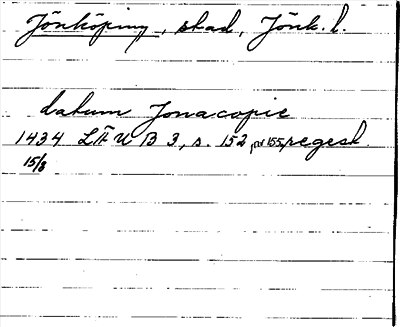 Jönköping, stad, Jönk. l.
datum Jonacopie
1434 LFUB 3, s. 152, nr 155, regest.
15/8